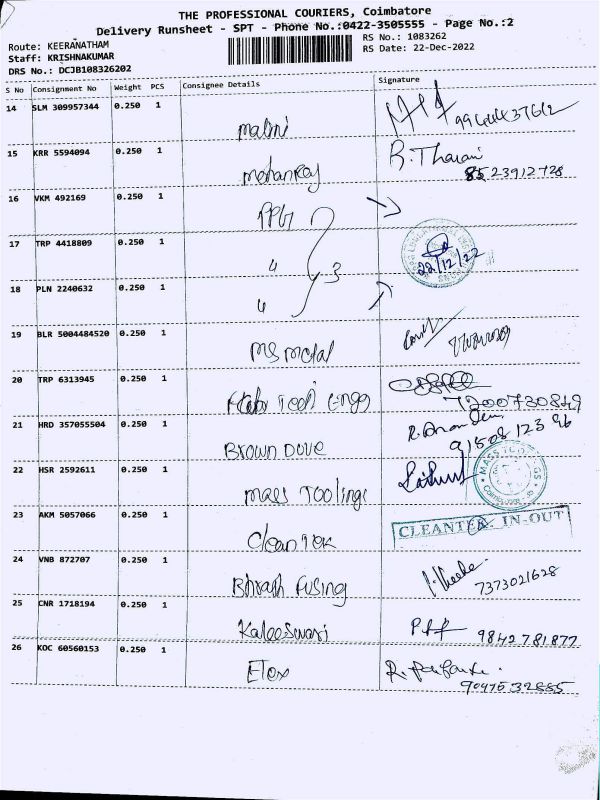 THE PROFESSIONAL COURIERS, Coimbatore
Delivery Runsheet - SPT - Phone No.:0422-3505555 - Page No.:2
Route: KEERANATHAM
Staff: KRISHNAKUMAR
DRS No.: DCJB108326202
RS No.: 1083262
RS Date: 22-Dec-2022
S No Consignment No Weight PCS Consignee Details Signature
14 SLM 309957344 0.250 1 malni
15 KRR 5594094 0.250 1 mohanraj R. Tharani
8523912728
16 VKM 492169 0.250 1 PPG
17 TRP 4418809 0.250 1 " 3 22/12/22
18 PLN 2240632 0.250 1 "
19 BLR 5004484520 0.250 1 MS metal
20 TRP 6313945 0.250 1 Tech Engg
7200730849
21 HRD 357055504 0.250 1 Brown Dove
91508 123 96
22 HSR 2592611 0.250 1 mass Toolings MASS TOOLINGS
23 AKM 5057066 0.250 1 Clean Tek CLEANTEK IN-OUT
24 VNB 872707 0.250 1 Bharath Fusing
7373021628
25 CNR 1718194 0.250 1 Kaleeswari 9842781877
26 KOC 60560153 0.250 1 Elox